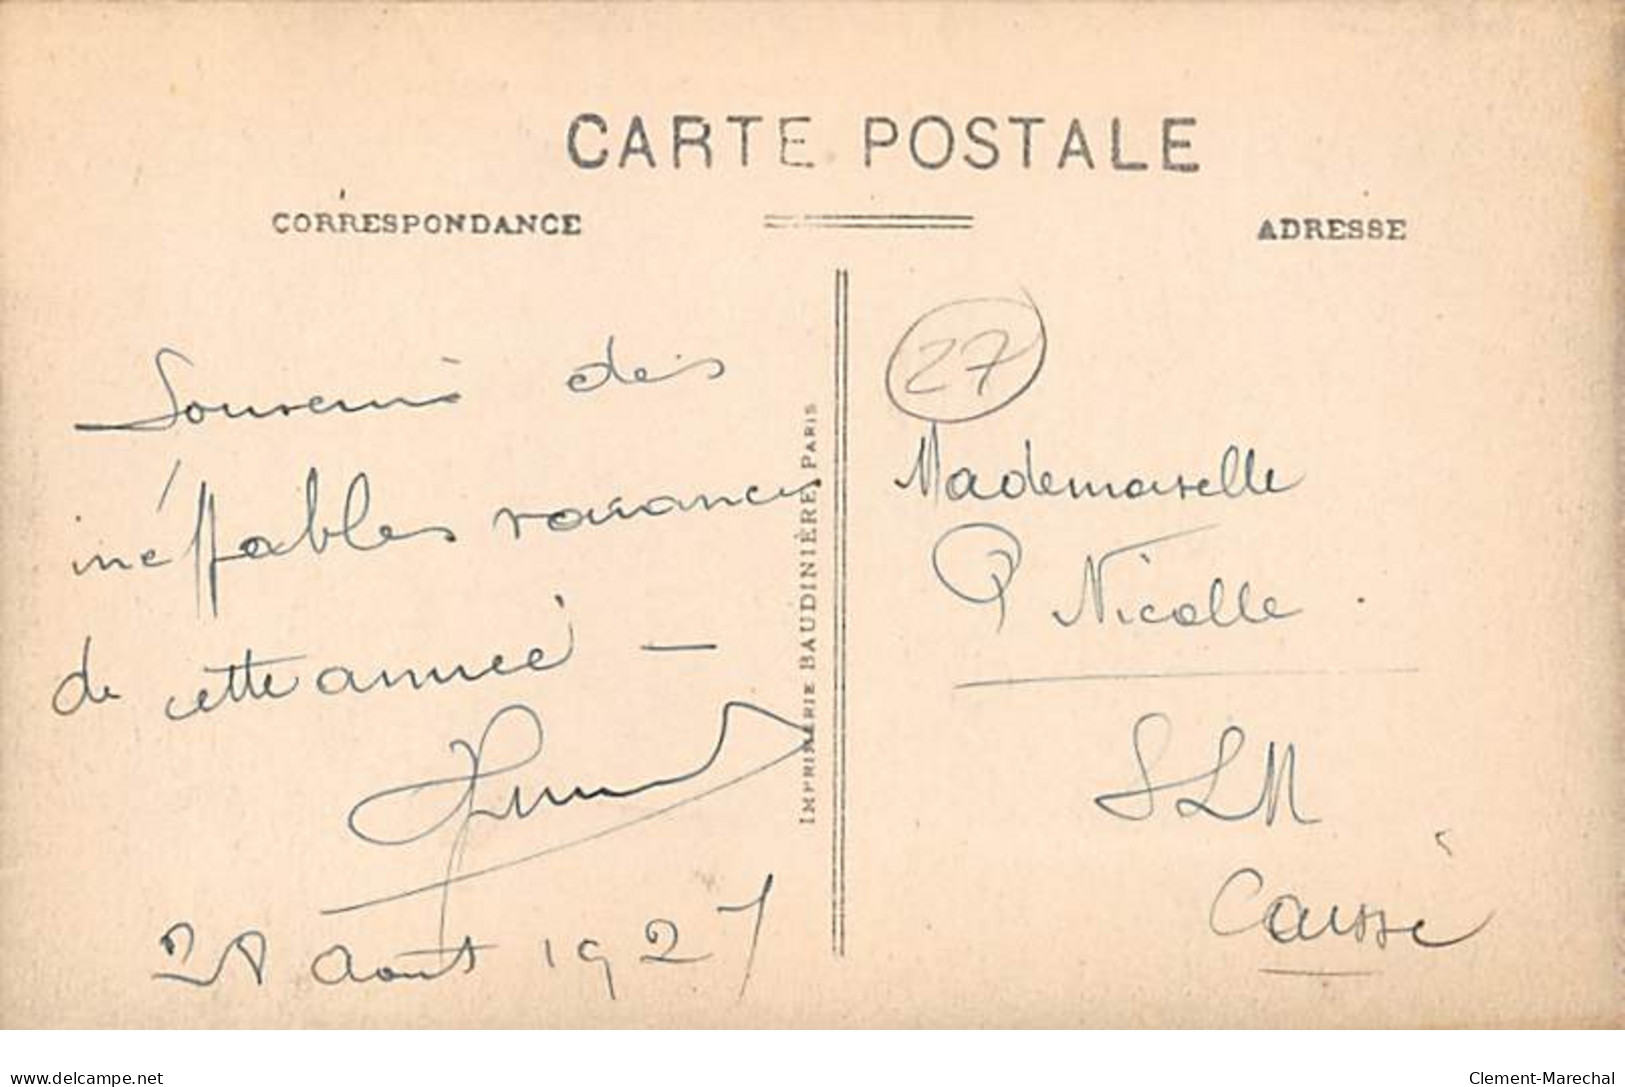 CARTE POSTALE
CORRESPONDANCE
ADRESSE
Souvenir des
inéffables vacances
de cette année —
28 Août 1927
IMPRIMERIE BAUDINIÈRE, PARIS
27
Mademoiselle
P Nicolle.
SLM
Caissé
delcampe.net
Clement-Marechal